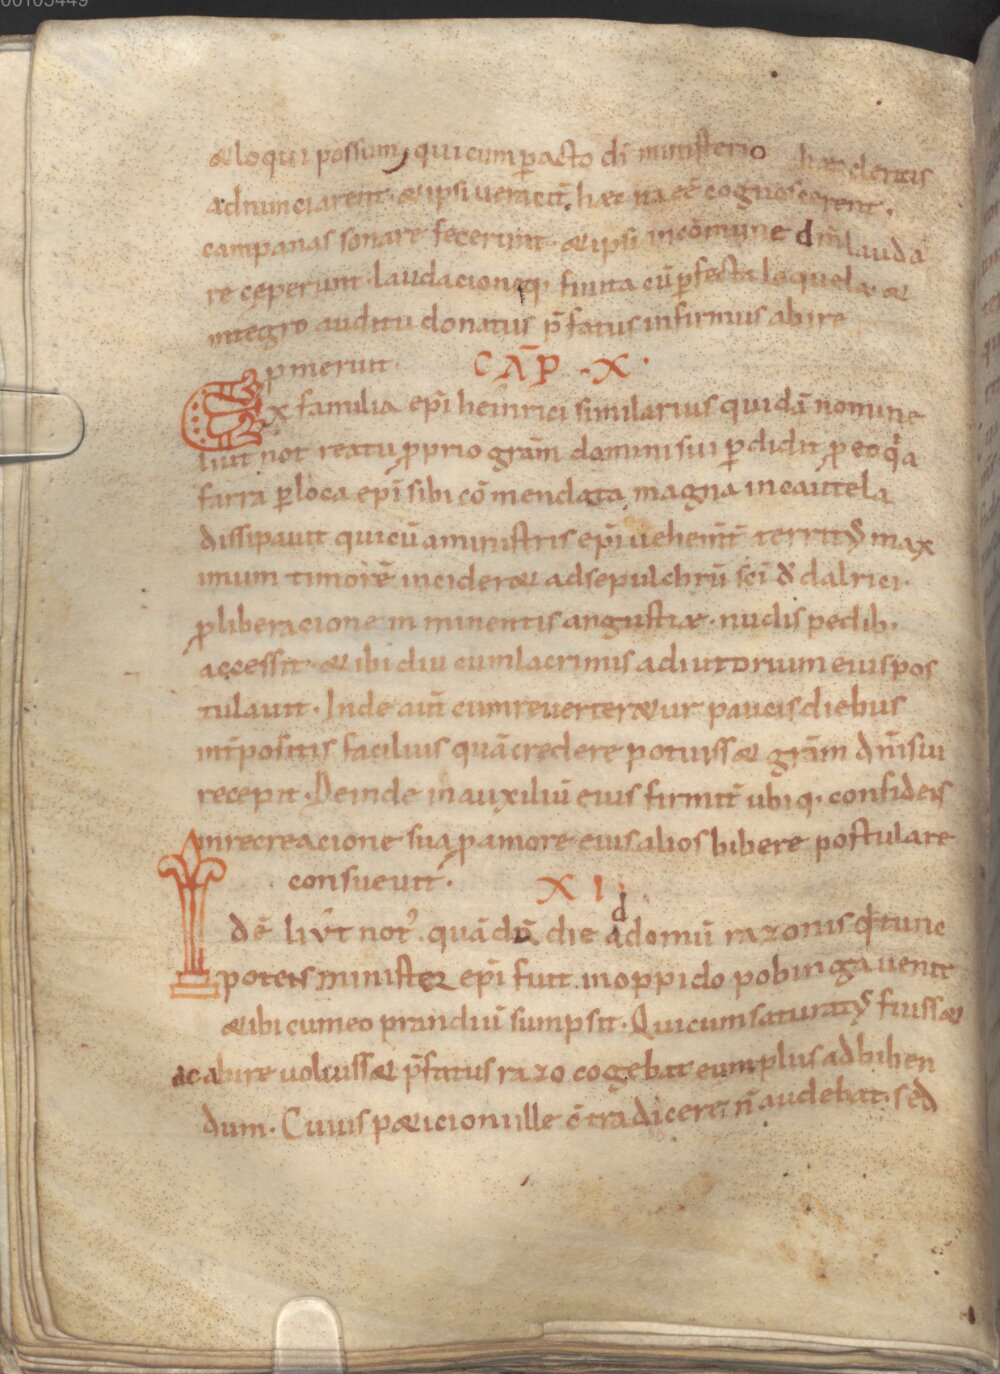 00105449
& loqui possum, qui cum pacto dī ministerio hæc clericis
adnunciarent. & ipsi veracit̄. hæc ita eē cognoscerent.
campanas sonare fecerunt. & ipsi incōmune dn̄m lauda
re ceperunt. laudacioneq; finita cū pfecta loquela &
integro auditu donatus p̄fatus infirmus abire
pmerunt.
CAP̄ · X ·
Ex familia ep̄i heinrici similarius quidā nomine
liut not reatu pprio grām domini sui pdidit p eo q̇a
farra p loca ep̄i sibi cōmendata magna incautela
dissipavit qui cū aministris ep̄i vehem̄t territ9 max
imum timorē incider& ad sepulchrū sc̄i ŏdalrici.
p liberacione inminentis angustiæ. nudis pedib;
accessit. & ibi diu cum lacrimis adiutorium eius pos
tulavit. Inde aut̄ cum reverter&ur paucis diebus
int̄positis facilius quā credere potuiss& grām dn̄i sui
recepit. Deinde in auxiliū eius firmit̄ ubiq; confidens
in recreacione sua p amore eius alios bibere postulare
consuevit.
XI
Idē liut not. quādā die ad domū razonis q̄ tunc
potens minister ep̄i fuit. in oppido pobinga venit
& ibi cum eo prandiū sumpsit. Qui cum saturat9 fuiss&
ac abire voluiss& p̄fatus razo cogebat eum plus ad biben
dum. Cuius p&icioni ille ōtradicere n̄ audebat. sed